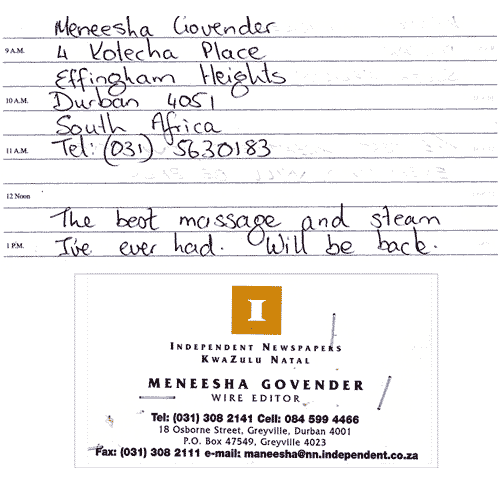 Meneesha Govender
9 A.M. 4 Kotecha Place
Effingham Heights
10 A.M. Durban 4051
South Africa
11 A.M. Tel: (031) 5630183
12 Noon
The best massage and steam
1 P.M. I've ever had. Will be back.
I
INDEPENDENT NEWSPAPERS
KWAZULU NATAL
MENEESHA GOVENDER
WIRE EDITOR
Tel: (031) 308 2141 Cell: 084 599 4466
18 Osborne Street, Greyville, Durban 4001
P.O. Box 47549, Greyville 4023
Fax: (031) 308 2111 e-mail: maneesha@nn.independent.co.za